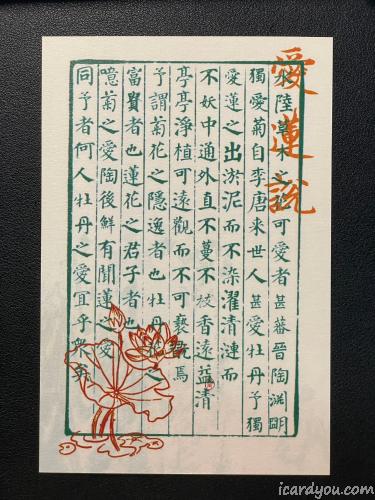 愛蓮說
水陸草木之花可愛者甚蕃晉陶淵明
獨愛菊自李唐来世人甚愛牡丹予獨
愛蓮之出淤泥而不染濯清漣而
不妖中通外直不蔓不枝香遠益清
亭亭淨植可遠觀而不可褻翫焉
予謂菊花之隱逸者也牡丹花之
富貴者也蓮花之君子者也
噫菊之愛陶後鮮有聞蓮之愛
同予者何人牡丹之愛宜乎衆矣
icardyou.com